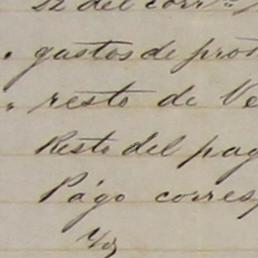 22 del corr.
" gastos de prot
" resto de Ve
Resto del pag
Págo corresp